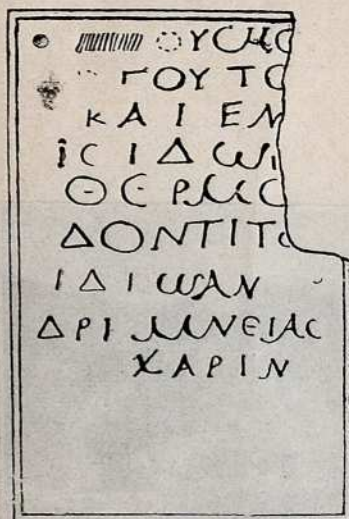 ΟΥCΗC
ΓΟΥ ΤΟ
ΚΑΙ ΕΝ
ΪCΙΔⲰΙ
ΘΕΡΜΙC
ΔΟΝΤΙ ΤC
ΙΔΙⲰ ΑΝ
ΔΡΙ ΜΝΕΙΑC
ΧΑΡΙΝ